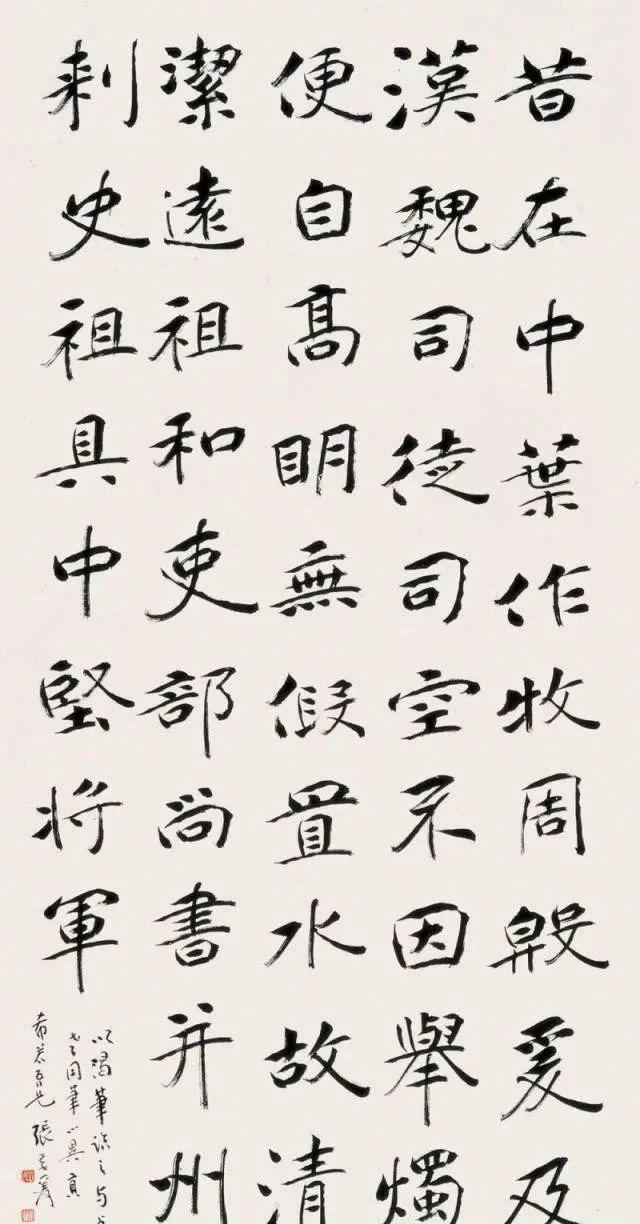 昔在中葉作牧周殷爰及
漢魏司徒司空不因舉燭
便自髙明無假置水故清
潔遠祖和吏部尚書并州
刺史祖具中堅將軍
以渴筆臨之与
同筆
吾兄 張